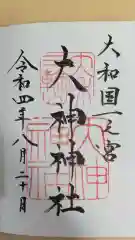 大和国一之宮
大神神社
令和四年八月二十日